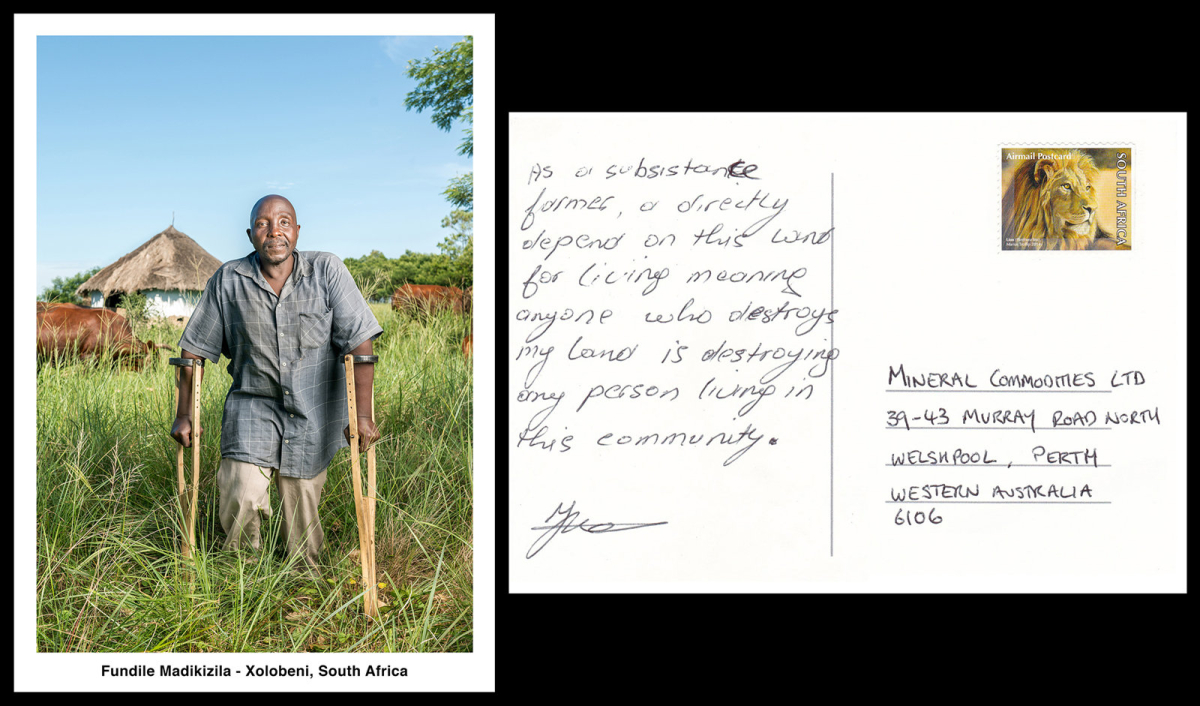 Fundile Madikizila - Xolobeni, South Africa
As a subsistance
farmer, a directly
depend on this land
for living meaning
anyone who destroys
my land is destroying
any person living in
this community.
Airmail Postcard
SOUTH AFRICA
MINERAL COMMODITIES LTD
39-43 MURRAY ROAD NORTH
WELSHPOOL, PERTH
WESTERN AUSTRALIA
6106